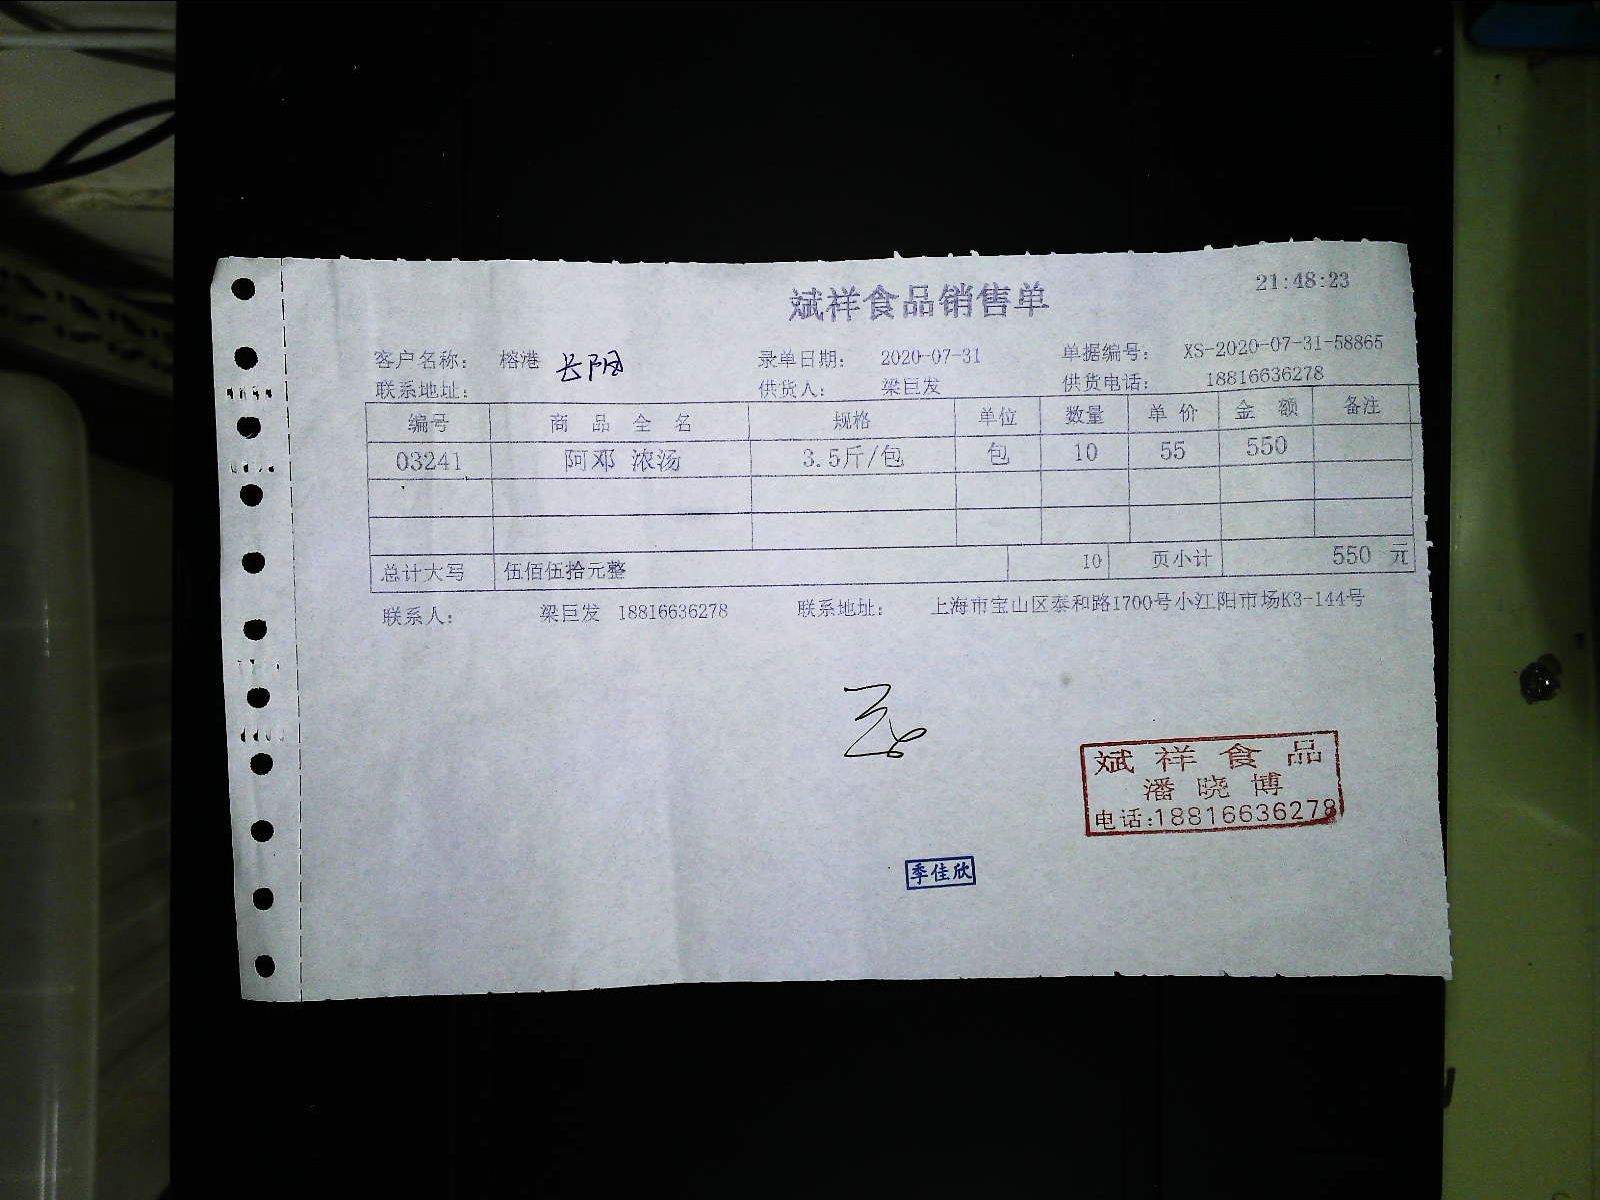 21:48:23
斌祥食品销售单
客户名称: 榕港 录单日期: 2020-07-31 单据编号: XS-2020-07-31-58865
联系地址: 供货人: 梁巨发 供货电话: 18816636278
编号 商品全名 规格 单位 数量 单价 金额 备注
03241 阿邓 浓汤 3.5斤/包 包 10 55 550
总计大写 伍佰伍拾元整 10 页小计 550 元
联系人: 梁巨发 18816636278 联系地址: 上海市宝山区泰和路1700号小江阳市场K3-144号
斌祥食品
潘晓博
电话:18816636278
季佳欣